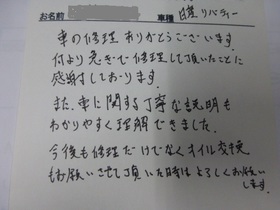 お名前 車種 日産 リバティー
車の修理ありがとうございます。
何より急ぎで修理して頂いたことに
感謝しております。
また、車に関する丁寧な説明も
わかりやすく理解できました。
今後も修理だけでなくオイル交換
もお願いさせて頂いた時はよろしくお願い
します。